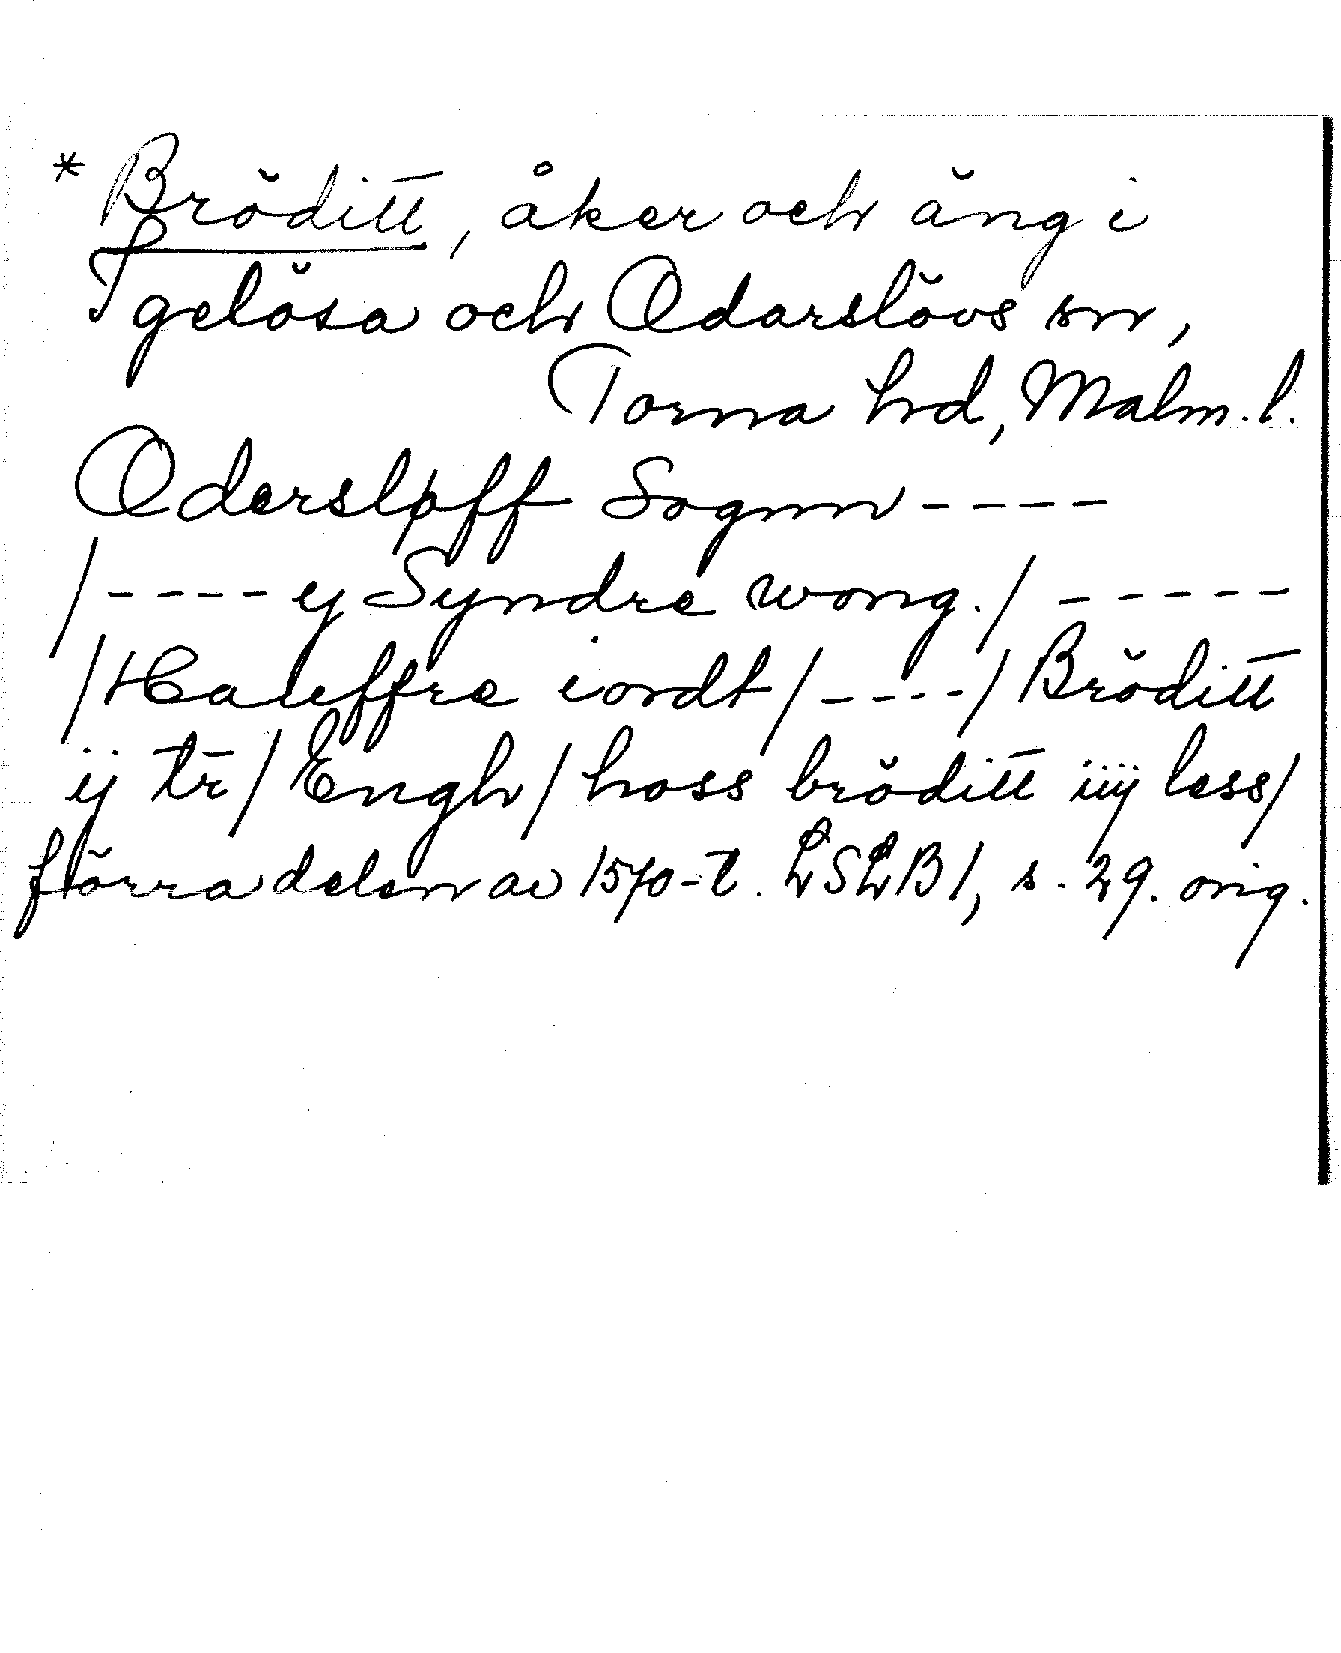 * Bröditt, åker och äng i
Igelösa och Odarslövs snr,
Torna hd, Malm. l.
Odersløff Sognn ----
/---- y Syndre wong./ -----
/Haluffre iordt/----/Bröditt
ij tr/Engh/hoss bröditt iiij less/
förra delen av 1570-t. LSLB1, s. 29. orig.